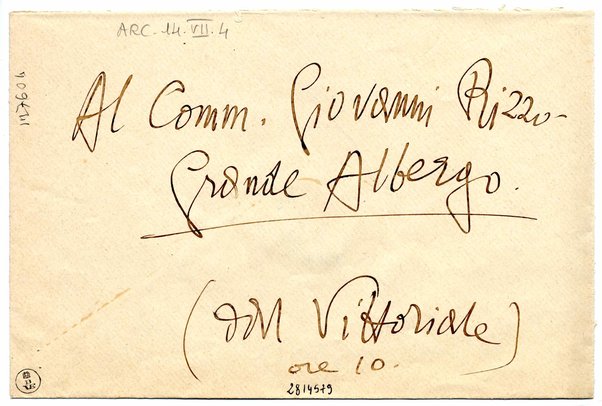 ARC. 14. VII. 4
Al Comm. Giovanni Rizzo-
Grande Albergo.
(dal Vittoriale)
ore 10.
2814579